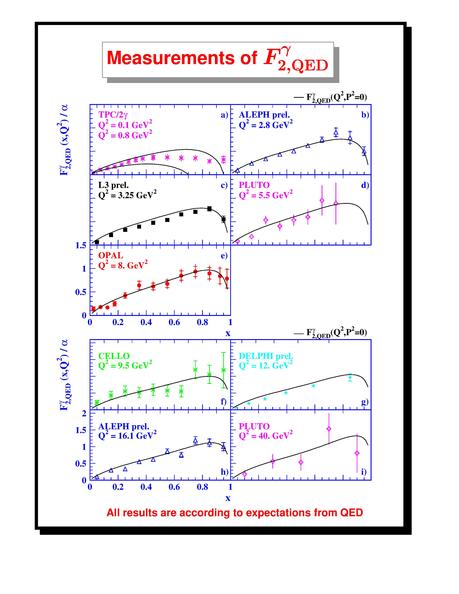 Measurements of F₂,QED^γ
— F₂,QED^γ(Q²,P²=0)
F₂,QED^γ (x,Q²) / α
TPC/2γ a)
Q² = 0.1 GeV²
Q² = 0.8 GeV²
ALEPH prel. b)
Q² = 2.8 GeV²
L3 prel. c)
Q² = 3.25 GeV²
PLUTO d)
Q² = 5.5 GeV²
1.5
OPAL e)
Q² = 8. GeV²
1
0.5
0
0 0.2 0.4 0.6 0.8 1
x
— F₂,QED^γ(Q²,P²=0)
F₂,QED^γ (x,Q²) / α
CELLO
Q² = 9.5 GeV²
f)
DELPHI prel.
Q² = 12. GeV²
g)
2
ALEPH prel.
1.5
Q² = 16.1 GeV²
1
0.5
h)
0
PLUTO
Q² = 40. GeV²
i)
0 0.2 0.4 0.6 0.8 1
x
All results are according to expectations from QED